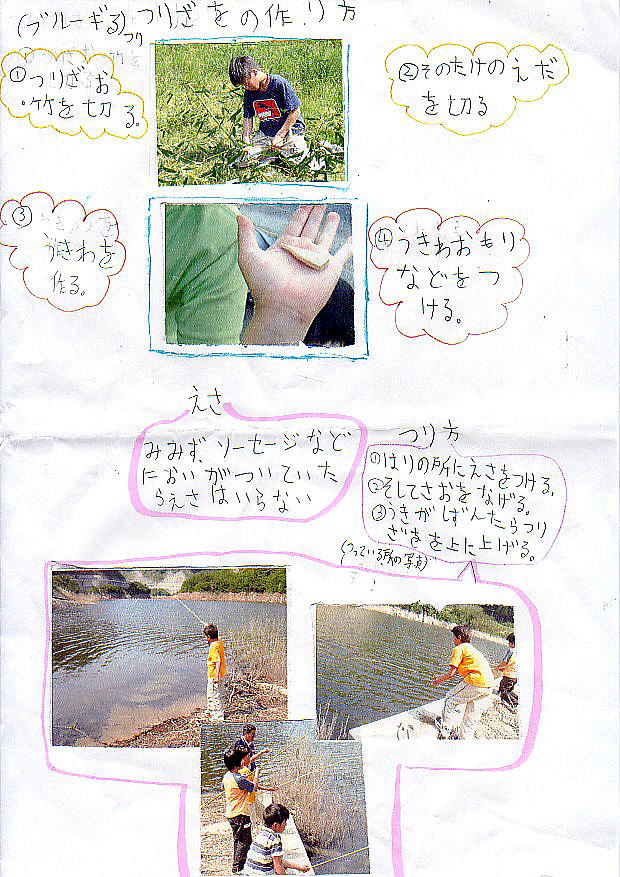 (ブルーギる)つりざをの作り方
つり
①つりざお
竹を切る。
②そのたけのえだ
を切る
③
うきわを
作る。
④うきわおもり
などをつ
ける。
えさ
みみず、ソーセージなど
においがついていた
らえさはいらない
つり方
①はりの所にえさをつける。
②そしてさおをなげる。
③うきがしずんだらつり
ざをを上に上げる。
(つっている所の写真)